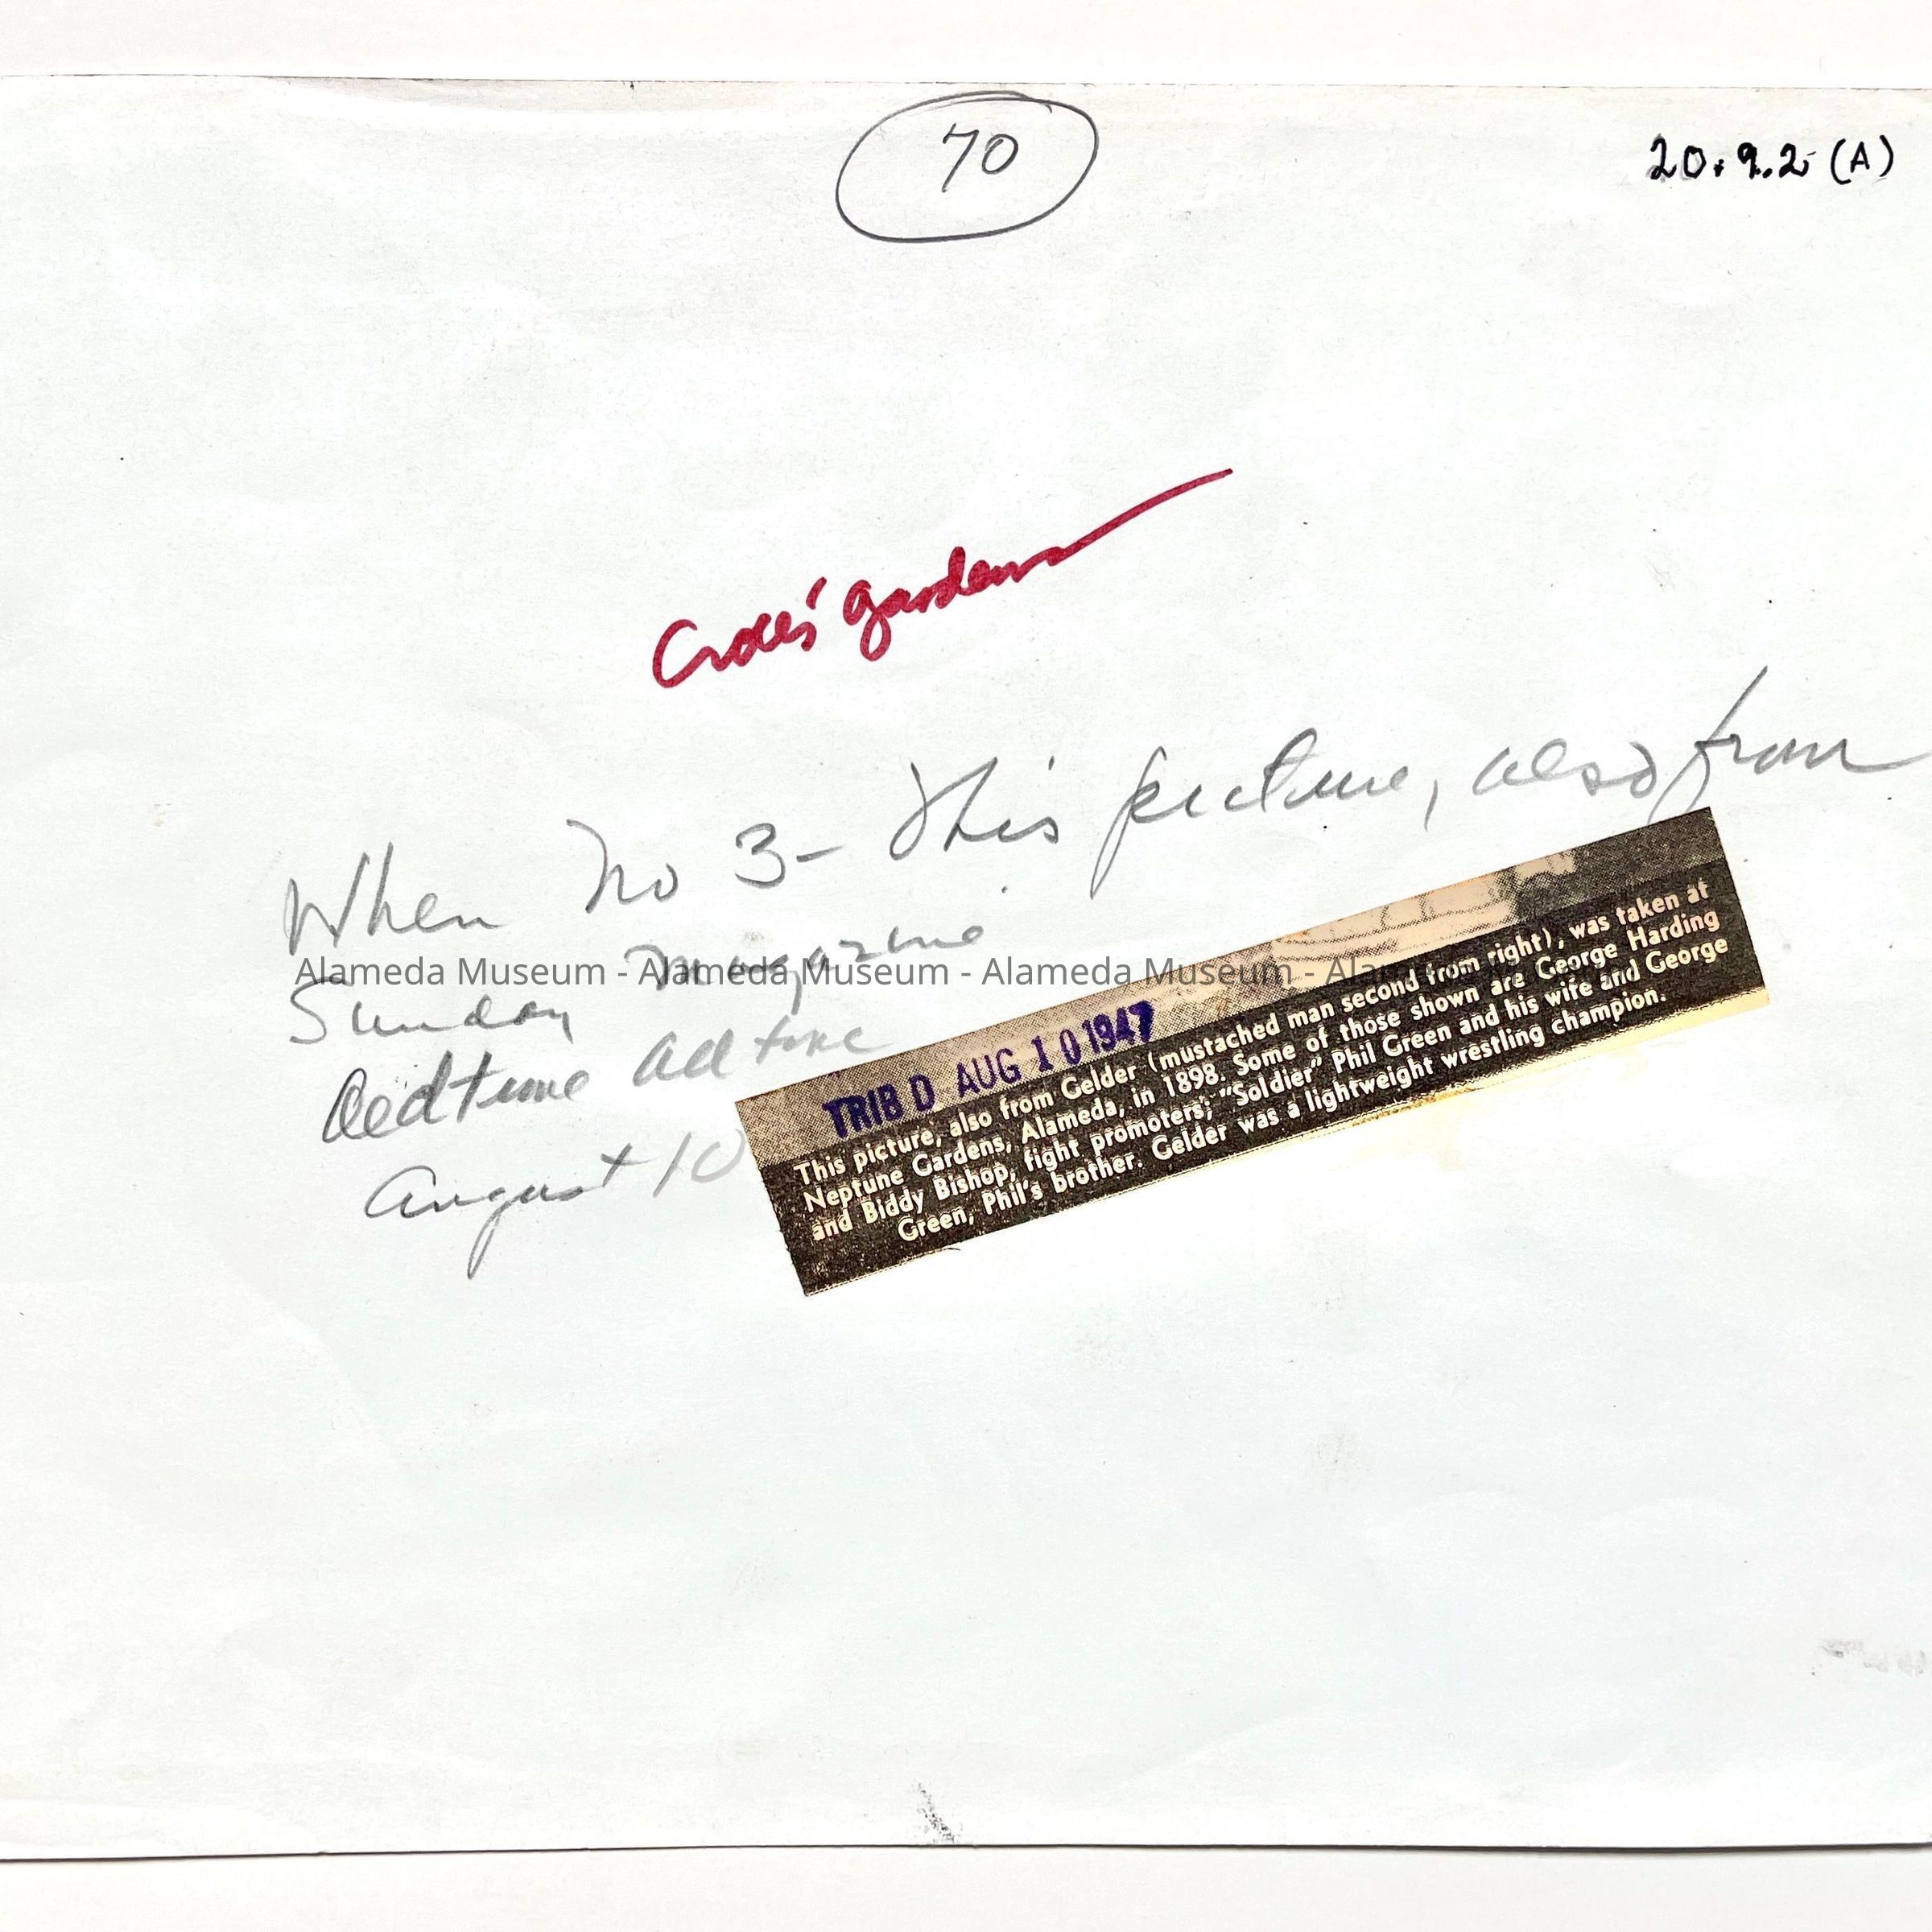 70
20.9.2 (A)
Croll's Gardens
When No 3- This picture, also from
Sunday Magazine
August 10
TRIB D AUG 10 1947
This picture, also from Gelder (mustached man second from right), was taken at
Neptune Gardens, Alameda, in 1898. Some of those shown are George Harding
and Biddy Bishop, fight promoters; "Soldier" Phil Green and his wife and George
Green, Phil's brother. Gelder was a lightweight wrestling champion.
Alameda Museum - Alameda Museum - Alameda Museum - Alameda Museum